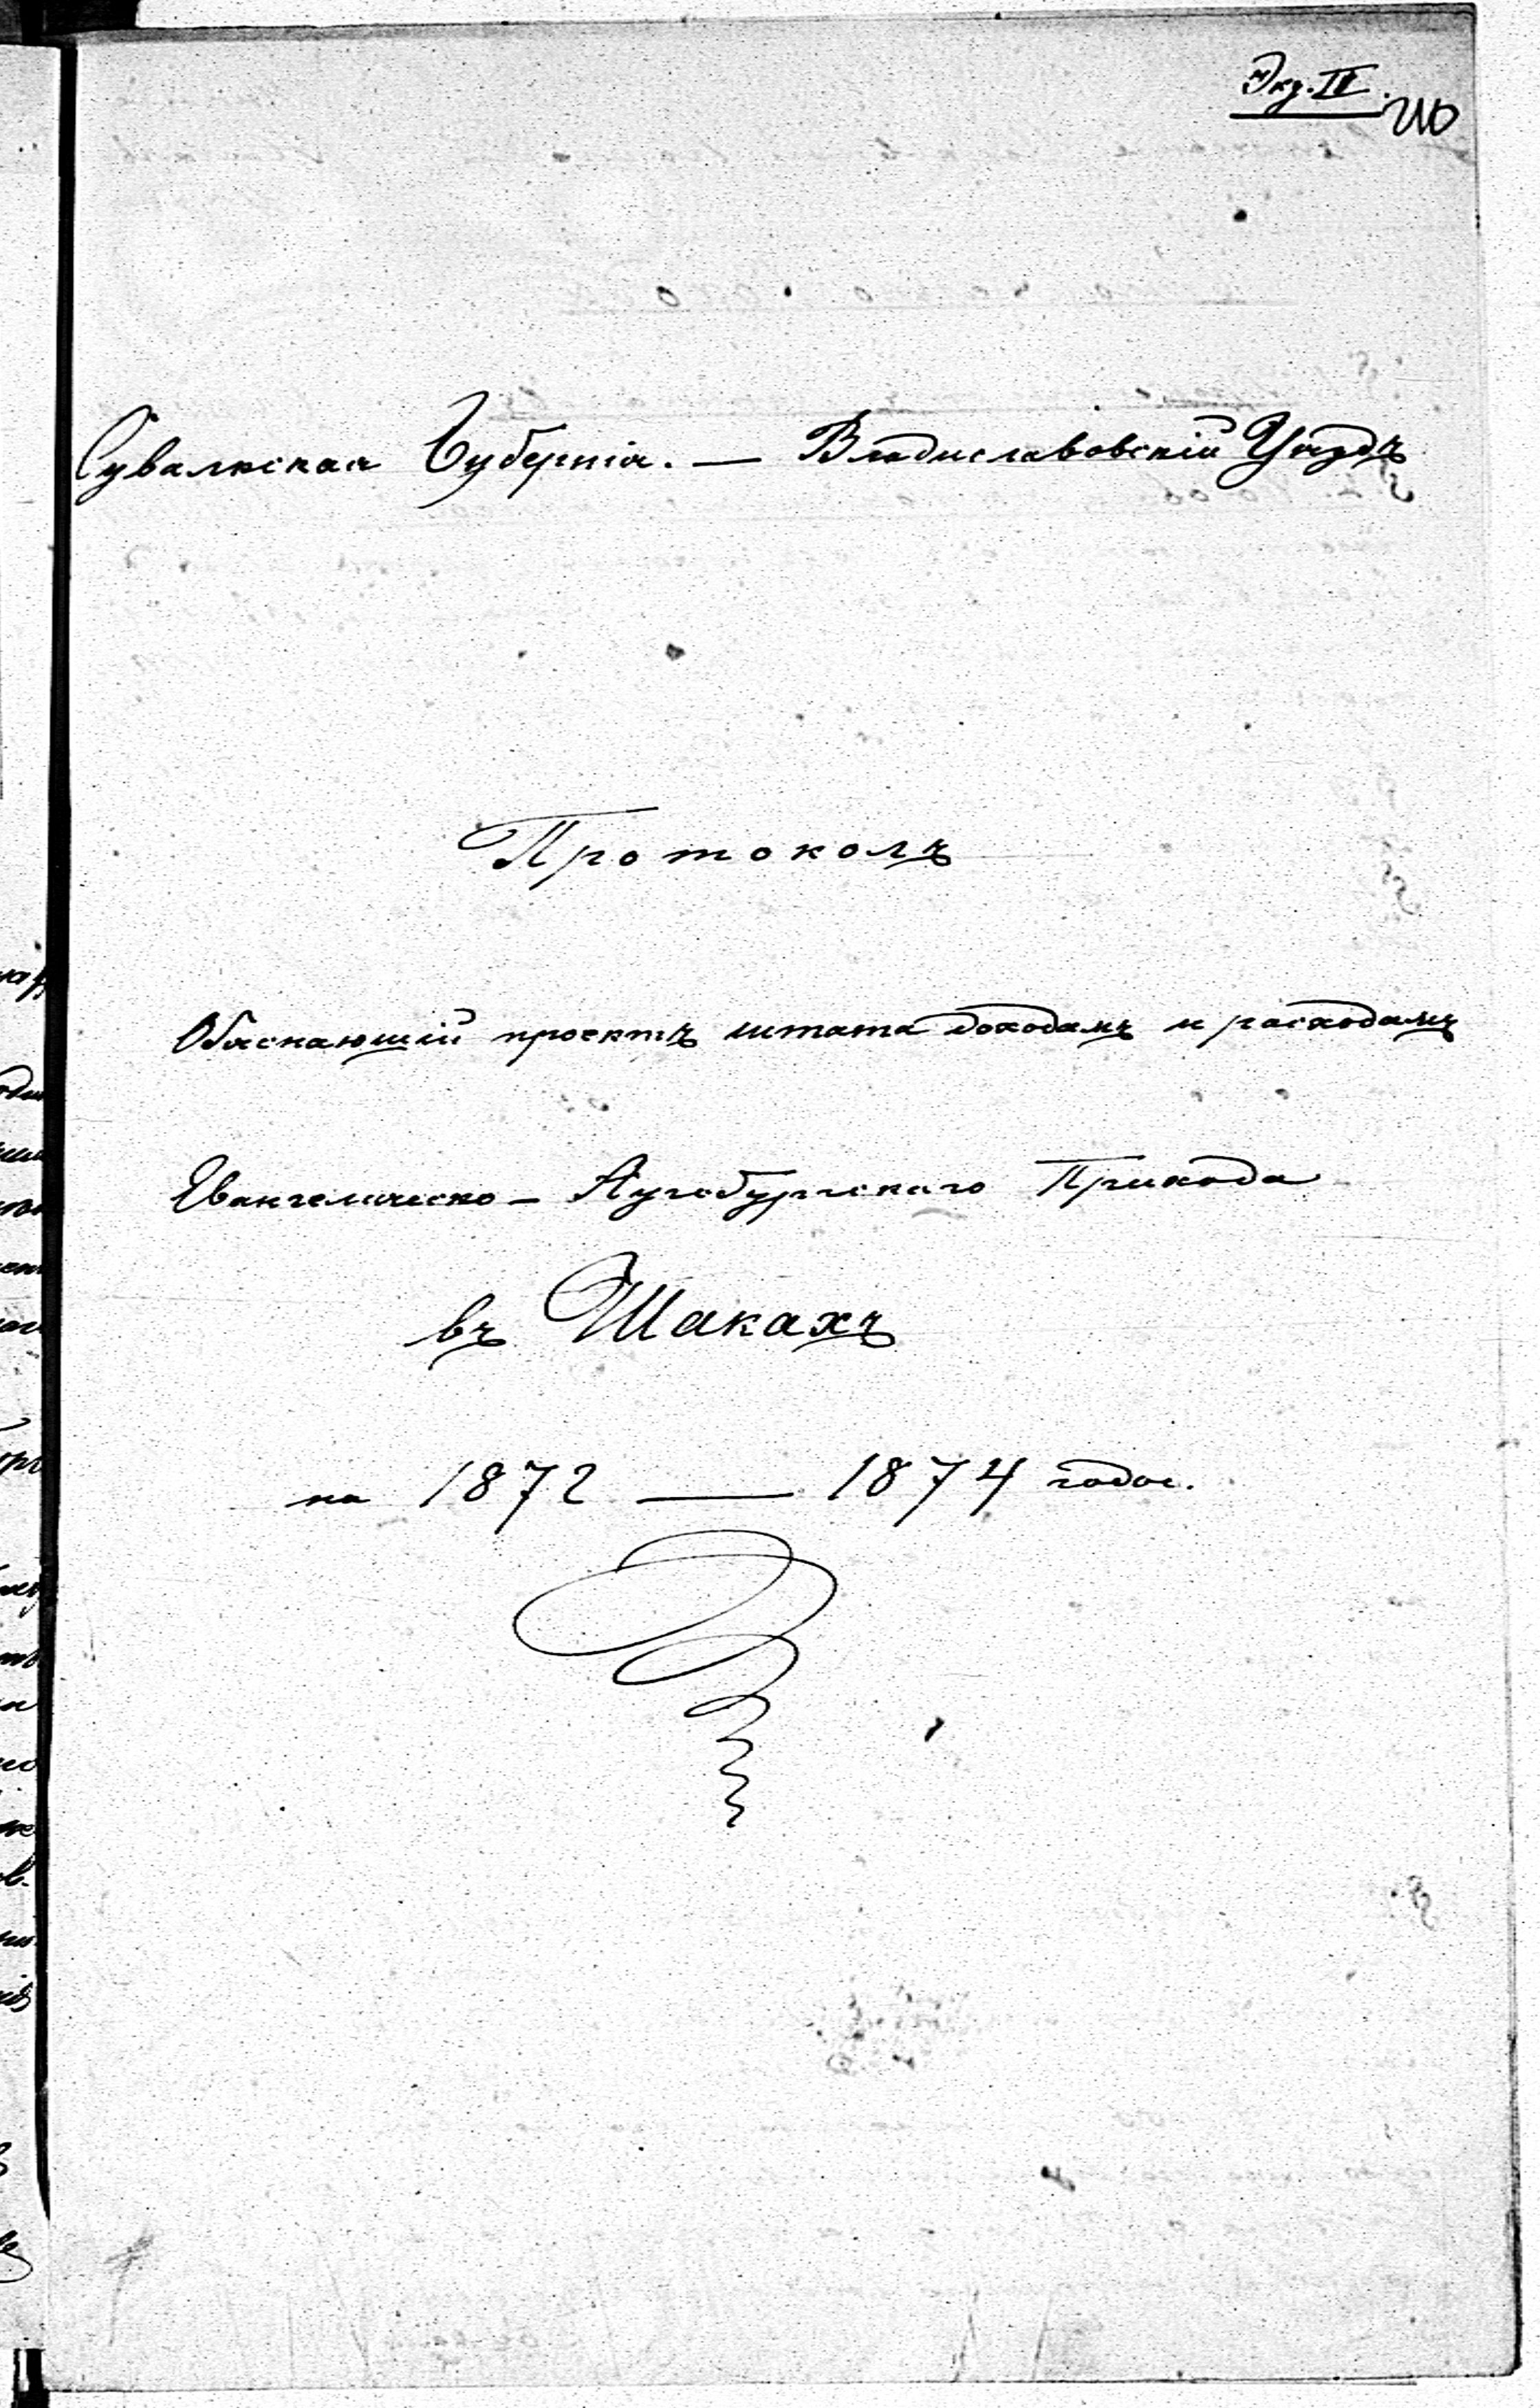 Экз. II.
210
Сувалкская Губернія. — Владиславовскій Уѣздъ
Протоколъ
Объясняющій проектъ штата доходамъ и расходамъ
Евангелическо- Аугсбургскаго Прихода
въ Шакахъ
на 1872 — 1874 годы.